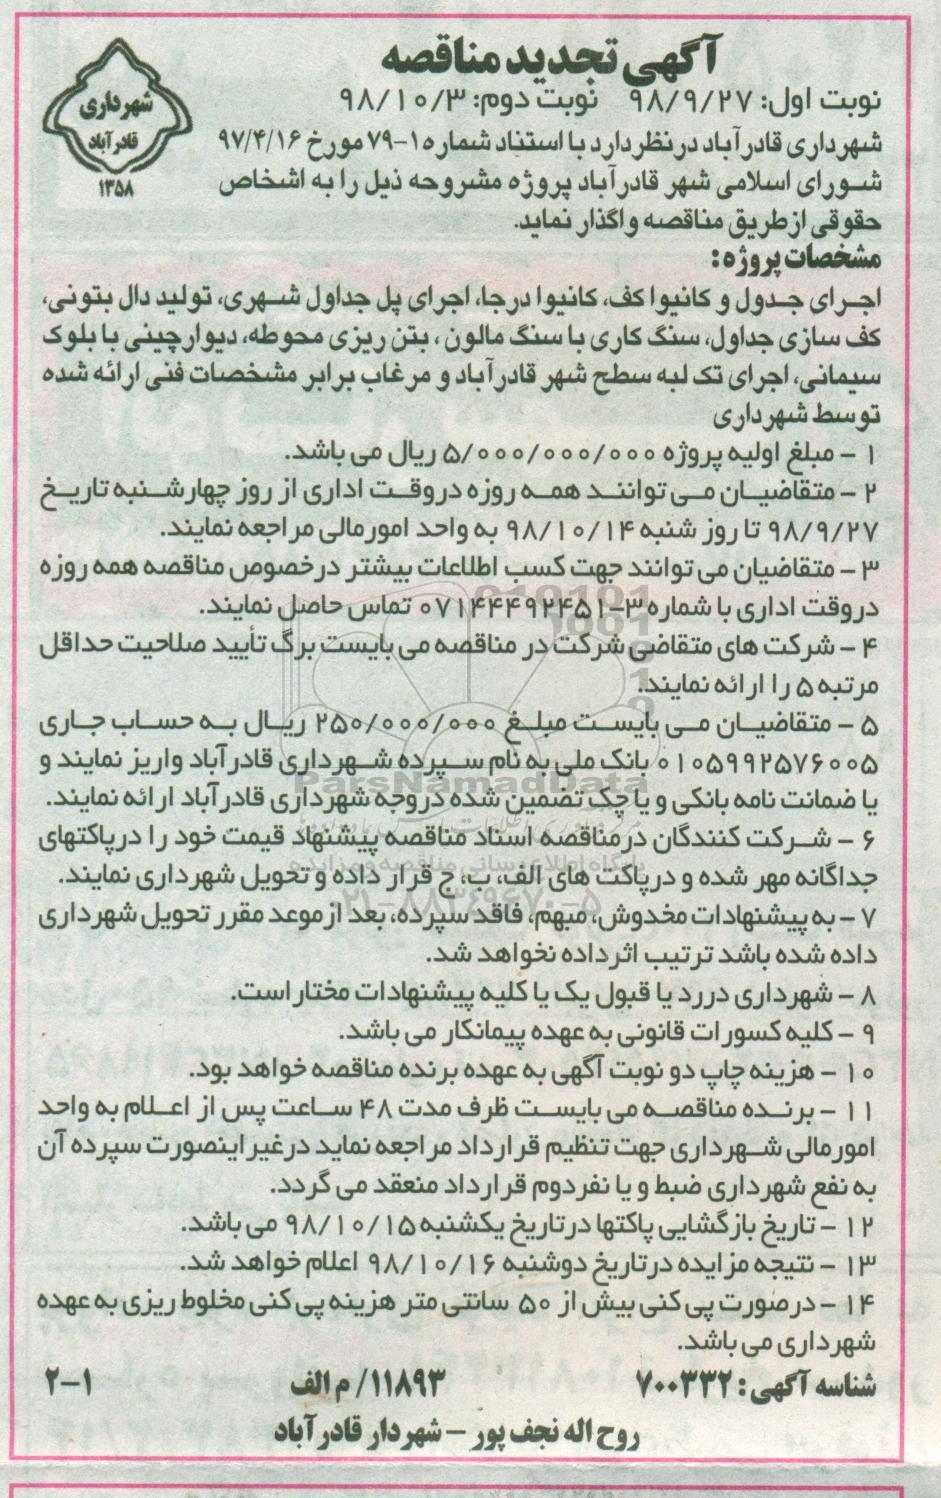 آگهی تجدید مناقصه
نوبت اول: ۹۸/۹/۲۷ نوبت دوم: ۹۸/۱۰/۳
شهرداری
قادرآباد
۱۳۵۸
شهرداری قادرآباد درنظردارد با استناد شماره ۱-۷۹ مورخ ۹۷/۴/۱۶
شورای اسلامی شهر قادرآباد پروژه مشروحه ذیل را به اشخاص
حقوقی ازطریق مناقصه واگذار نماید.
مشخصات پروژه:
اجرای جدول و کانیوا کف، کانیوا درجا، اجرای پل جداول شهری، تولید دال بتونی،
کف سازی جداول، سنگ کاری با سنگ مالون، بتن ریزی محوطه، دیوارچینی با بلوک
سیمانی، اجرای تک لبه سطح شهر قادرآباد و مرغاب برابر مشخصات فنی ارائه شده
توسط شهرداری
۱ - مبلغ اولیه پروژه ۵/۰۰۰/۰۰۰/۰۰۰ ریال می باشد.
۲ - متقاضیان می توانند همه روزه دروقت اداری از روز چهارشنبه تاریخ
۹۸/۹/۲۷ تا روز شنبه ۹۸/۱۰/۱۴ به واحد امورمالی مراجعه نمایند.
۳ - متقاضیان می توانند جهت کسب اطلاعات بیشتر درخصوص مناقصه همه روزه
دروقت اداری با شماره ۳-۰۷۱۴۴۴۹۲۴۵۱ تماس حاصل نمایند.
۴ - شرکت های متقاضی شرکت در مناقصه می بایست برگ تأیید صلاحیت حداقل
مرتبه ۵ را ارائه نمایند.
۵ - متقاضیان می بایست مبلغ ۲۵۰/۰۰۰/۰۰۰ ریال به حساب جاری
۰۱۰۵۹۹۲۵۷۶۰۰۵ بانک ملی به نام سپرده شهرداری قادرآباد واریز نمایند و
یا ضمانت نامه بانکی و یا چک تضمین شده دروجه شهرداری قادرآباد ارائه نمایند.
۶ - شرکت کنندگان درمناقصه اسناد مناقصه پیشنهاد قیمت خود را درپاکتهای
جداگانه مهر شده و درپاکت های الف، ب، ج قرار داده و تحویل شهرداری نمایند.
۷ - به پیشنهادات مخدوش، مبهم، فاقد سپرده، بعد ازموعد مقرر تحویل شهرداری
داده شده باشد ترتیب اثرداده نخواهد شد.
۸ - شهرداری دررد یا قبول یک یا کلیه پیشنهادات مختاراست.
۹ - کلیه کسورات قانونی به عهده پیمانکار می باشد.
۱۰ - هزینه چاپ دو نوبت آگهی به عهده برنده مناقصه خواهد بود.
۱۱ - برنده مناقصه می بایست ظرف مدت ۴۸ ساعت پس از اعلام به واحد
امورمالی شهرداری جهت تنظیم قرارداد مراجعه نماید درغیراینصورت سپرده آن
به نفع شهرداری ضبط و یا نفردوم قرارداد منعقد می گردد.
۱۲ - تاریخ بازگشایی پاکتها درتاریخ یکشنبه ۹۸/۱۰/۱۵ می باشد.
۱۳ - نتیجه مزایده درتاریخ دوشنبه ۹۸/۱۰/۱۶ اعلام خواهد شد.
۱۴ - درصورت پی کنی بیش از ۵۰ سانتی متر هزینه پی کنی مخلوط ریزی به عهده
شهرداری می باشد.
شناسه آگهی: ۷۰۰۳۳۲ ۱۱۸۹۳/ م الف ۲-۱
روح اله نجف پور - شهردار قادرآباد
ParsNamadData
پایگاه اطلاع رسانی مناقصه و مزایده
۰۲۱-۸۸۳۴۹۶۷۰-۵